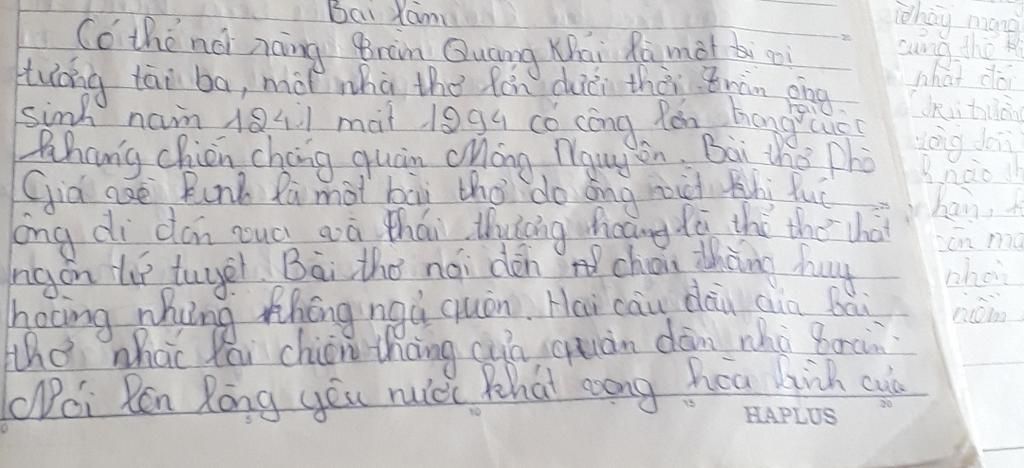 Bài làm
Có thể nói rằng Trần Quang Khải là một vị
tướng tài ba, một nhà thơ lớn dưới thời Trần ông
sinh năm 1241 mất 1294 có công lớn trong cuộc
kháng chiến chống quân Mông Nguyên. Bài thơ Phò
Giá về Kinh là một bài thơ do ông viết khi lúc
ông đi đón vua và thái thượng hoàng là thể thơ thất
ngôn tứ tuyệt. Bài thơ nói đến chiến thắng huy
hoàng nhưng không ngủ quên. Hai câu đầu của bài
thơ nhắc lại chiến thắng của quân dân nhà Trần
Nói lên lòng yêu nước khát vọng hòa bình của
HAPLUS
thầy mang
cũng thơ
nhất đối